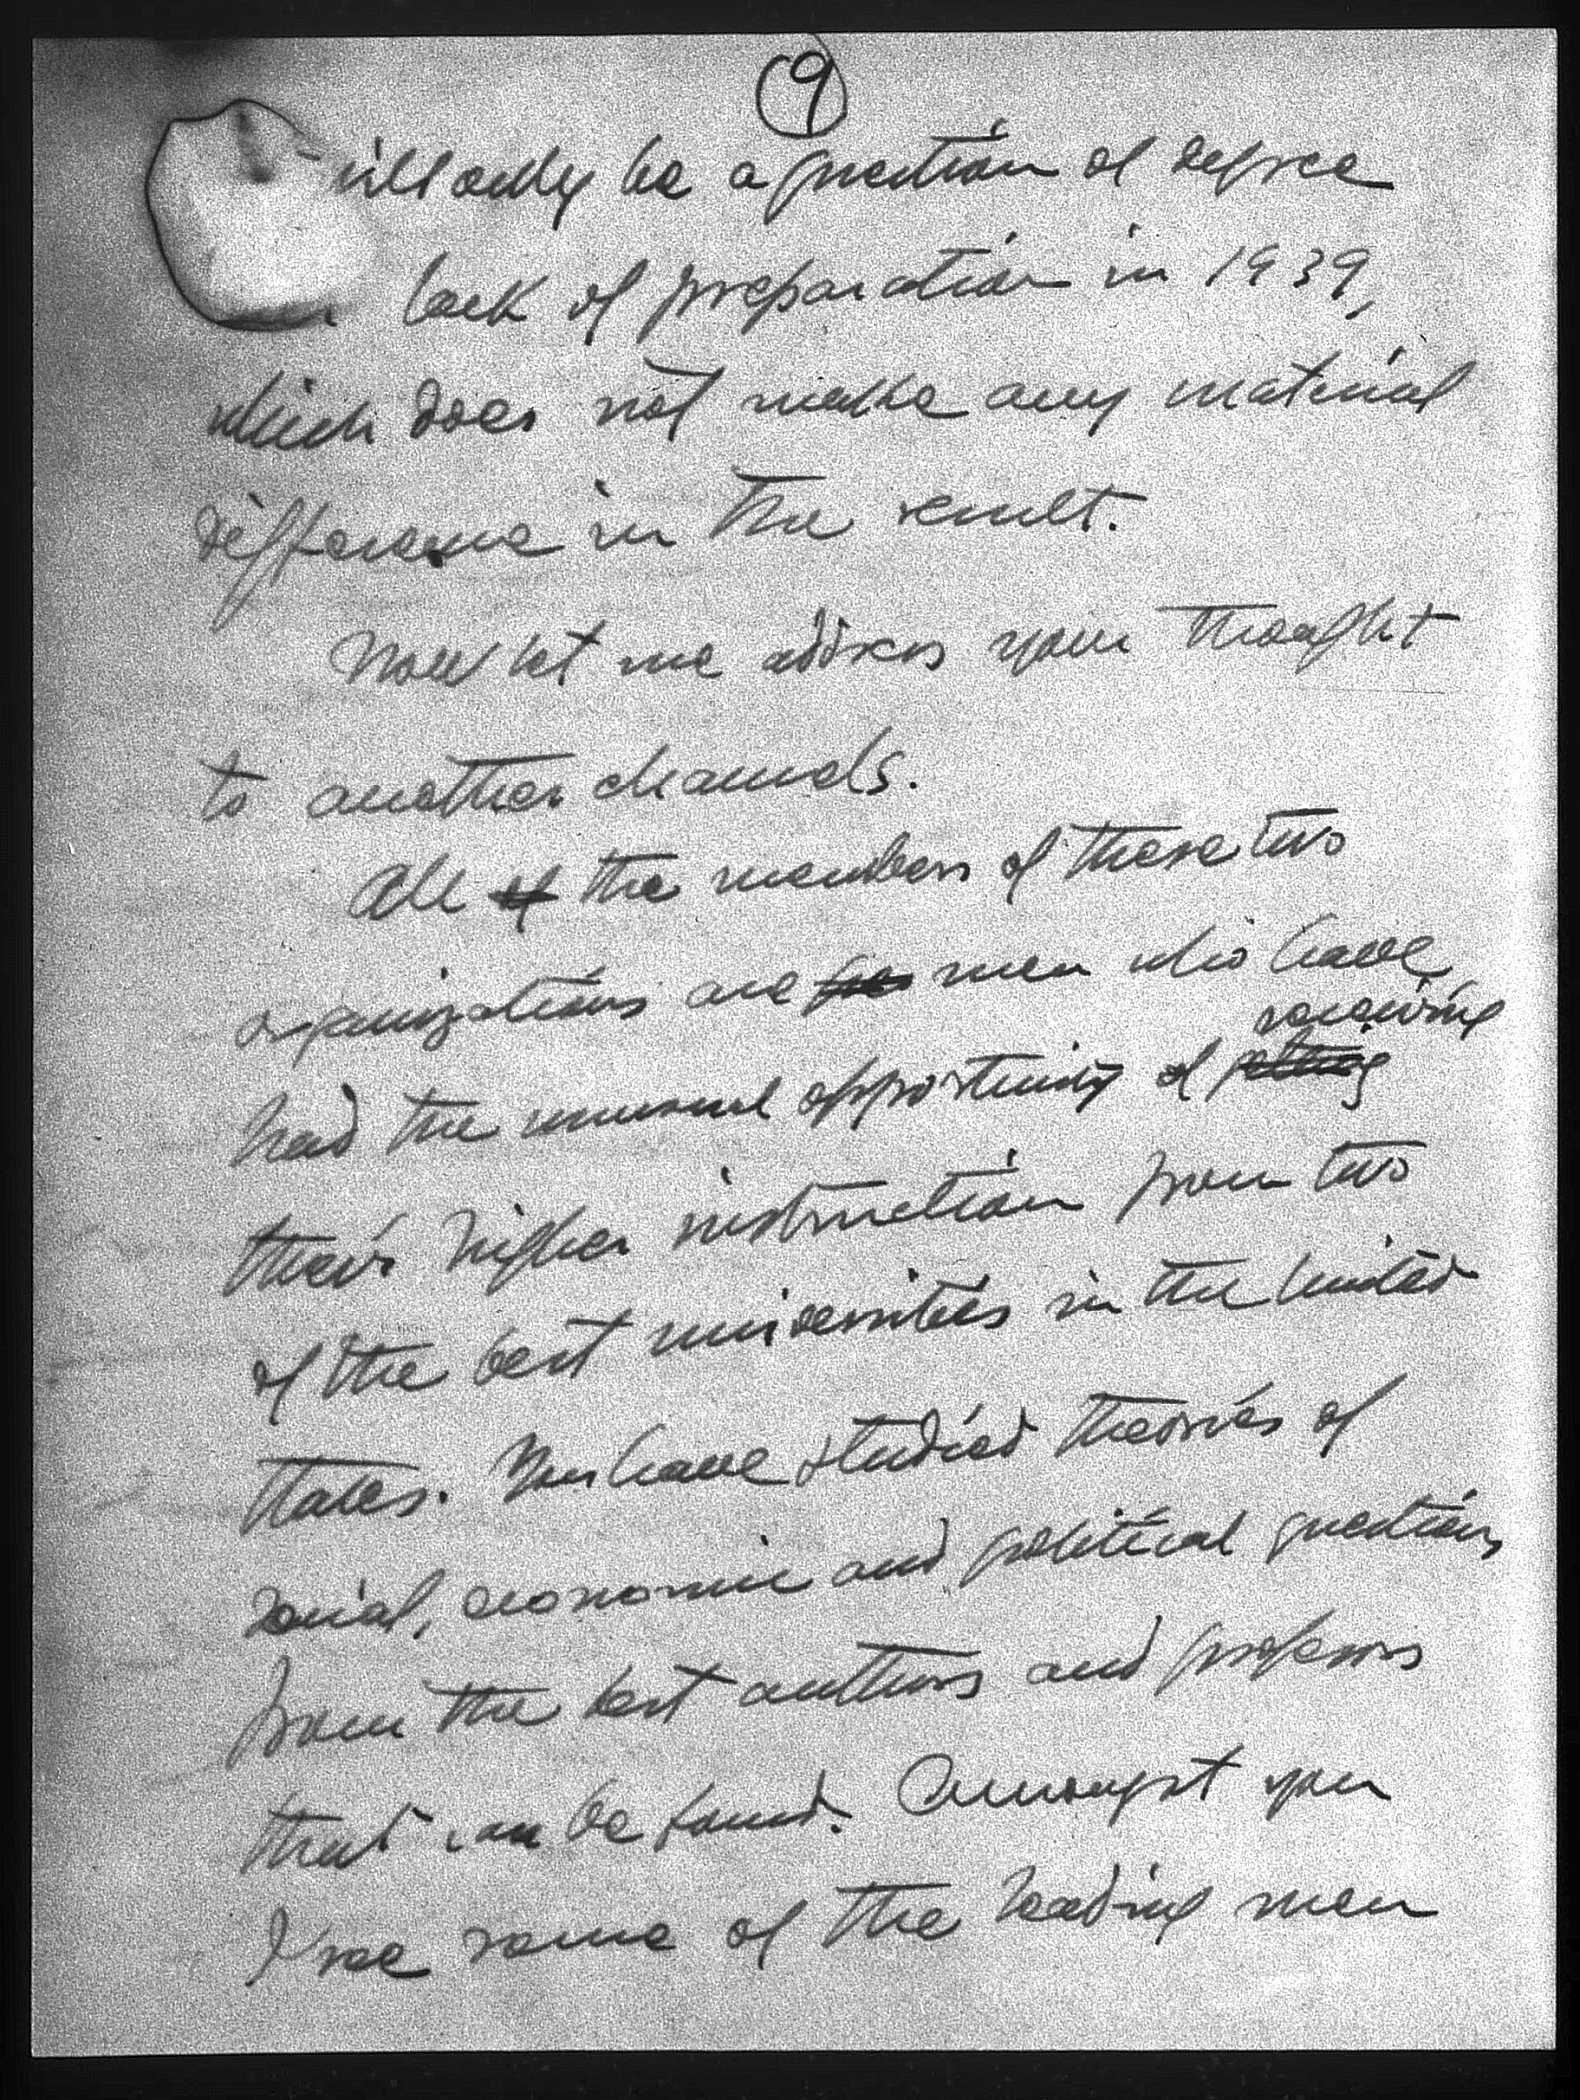 9
ill only be a question of degree
lack of preparation in 1939,
which does not make any material
difference in the result.
Now let me address your thought
to another channels.
All of the members of these two
organizations are men who have
receiving
had the unusual opportunity of getting
their higher instruction from two
of the best universities in the United
States. You have studied theories of
social, economic and political questions
from the best authors and professors
that can be found. Amongst you
I see some of the leading men